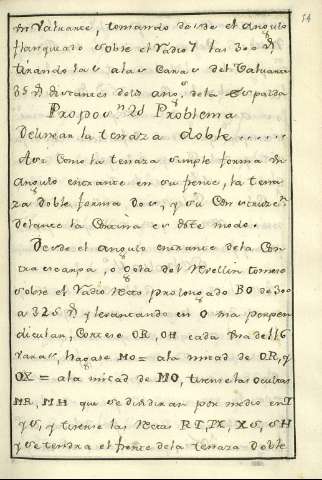 54
un Valuarte, tomando desde el Angulo
flanqueado sobre el Radio 7 las 300 Vs
tirando las alas Caras del Valuarte
35 Vs distantes de la espalda
Propon. 2d Problema
Delinear la tenaza doble......
Asi Como la tenaza simple forma un
Angulo entrante en su frente, la tena
za doble forma dos, y su Construzn.
delante la Cortina es deste modo.
Desde el angulo entrante de la Con
tra escarpa, ò gola del Revellin tomese
sobre el Radio Recto prolongado BO de 300
a 325 Vs y levantando en O una perpen
dicular, Cortese OR, OH cada una de 116
varas, hagase MO = ala mitad de OR, y
OX = ala mitad de MO, tirense las Ocultas
MR, MH que se dividiran por medio en T
y S, y tirense las Rectas RT, TX, XS, SH
y se tendra el frente de la tenaza doble